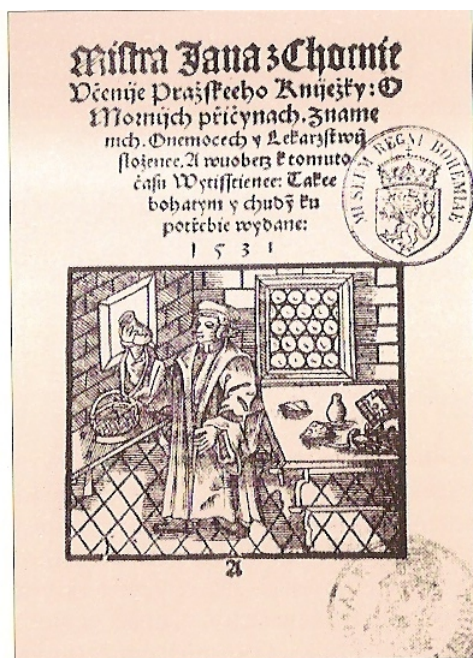 Mistra Jana z Chotnie
Včenije Pražskeeho Kniježky: O
Mornijch přičynach. Zname
nich. Onemocech y Lekarzstwij
složenee. A wuoberz k tomuto
času Wytisstienee: Takee
bohatym y chudȳ ku
potřebie wydane:
1531
MUSEUM REGNI BOHEMIAE
A